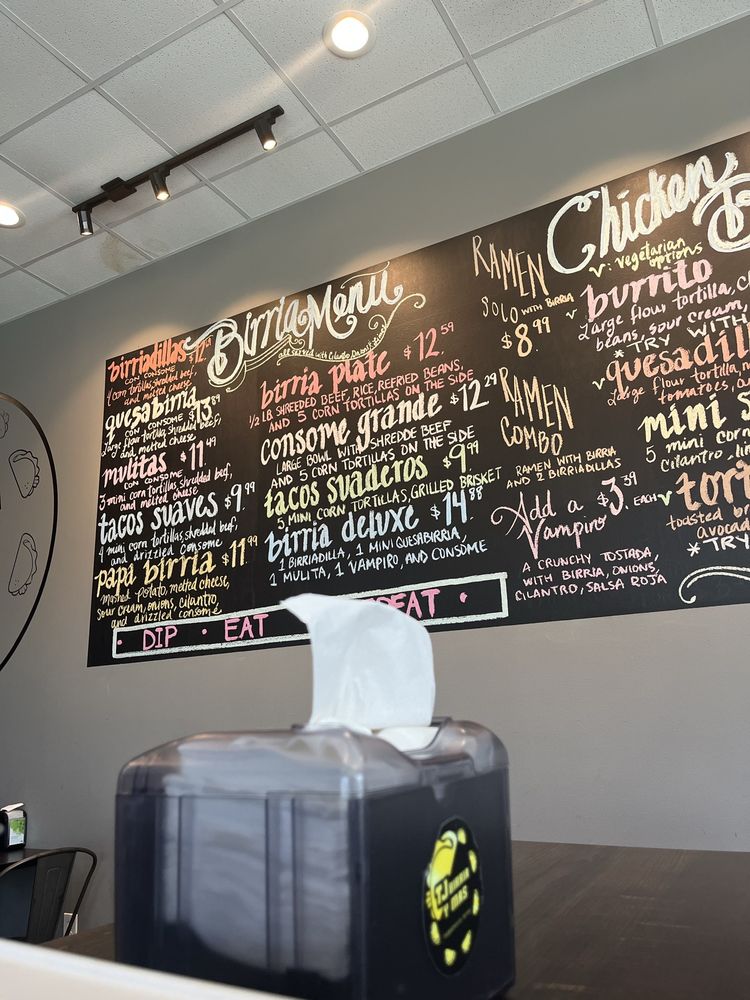 Birria Menu
all served with Cilantro Onions &
birriadillas
CON CONSOME
4 corn tortillas, shredded beef,
and melted cheese
quesabirria
CON CONSOME $13.89
Large flour tortilla, shredded beef,
and melted cheese
mulitas $11.49
CON CONSOME
3 mini corn tortillas, shredded beef,
and melted cheese
tacos suaves $9.99
4 mini corn tortillas, shredded beef,
and drizzled consome
papa birria $11.99
Mashed potato, melted cheese,
sour cream, onions, cilantro
and drizzled consome
birria plate $12.59
1/2 LB SHREEDED BEEF, RICE, REFRIED BEANS,
AND 5 CORN TORTILLAS ON THE SIDE
consome grande $12.29
LARGE BOWL WITH SHREDDE BEEF
AND 5 CORN TORTILLAS ON THE SIDE
tacos suaderos $9.99
5 MINI CORN TORTILLAS, GRILLED BRISKET
birria deluxe $14.88
1 BIRRIADILLA, 1 MINI QUESABIRRIA,
1 MULITA, 1 VAMPIRO, AND CONSOME
· DIP · EAT EAT ·
RAMEN
SOLO WITH BIRRIA
$8.99
RAMEN
COMBO
RAMEN WITH BIRRIA
AND 2 BIRRIADILLAS
Add a $3.39 EACH
Vampiro
A CRUNCHY TOSTADA,
WITH BIRRIA, ONIONS,
CILANTRO, SALSA ROJA
Chicken
v: vegetarian
options
v burrito
Large flour tortilla, C
beans, sour cream,
*TRY WITH
v quesadill
Large flour tortilla, m
tomatoes, o
mini s
5 mini corn
cilantro, lim
v tort
toasted bo
avocad
*TRY
TJ BIRRIA
Y MAS